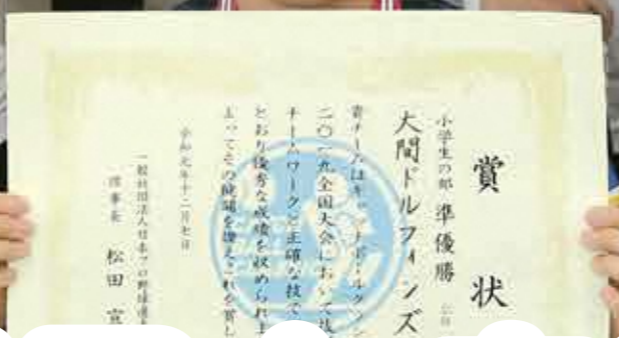 賞状
小学生の部 準優勝
大間ドルフィンズ
貴チームはキャッチボールクラシッ
二〇一九全国大会において抜
チームワークと正確な技で
とおり優秀な成績を収められま
よってその健闘を讃えこれを賞し
令和元年十二月七日
一般社団法人日本プロ野球選
理事長 松田 宣